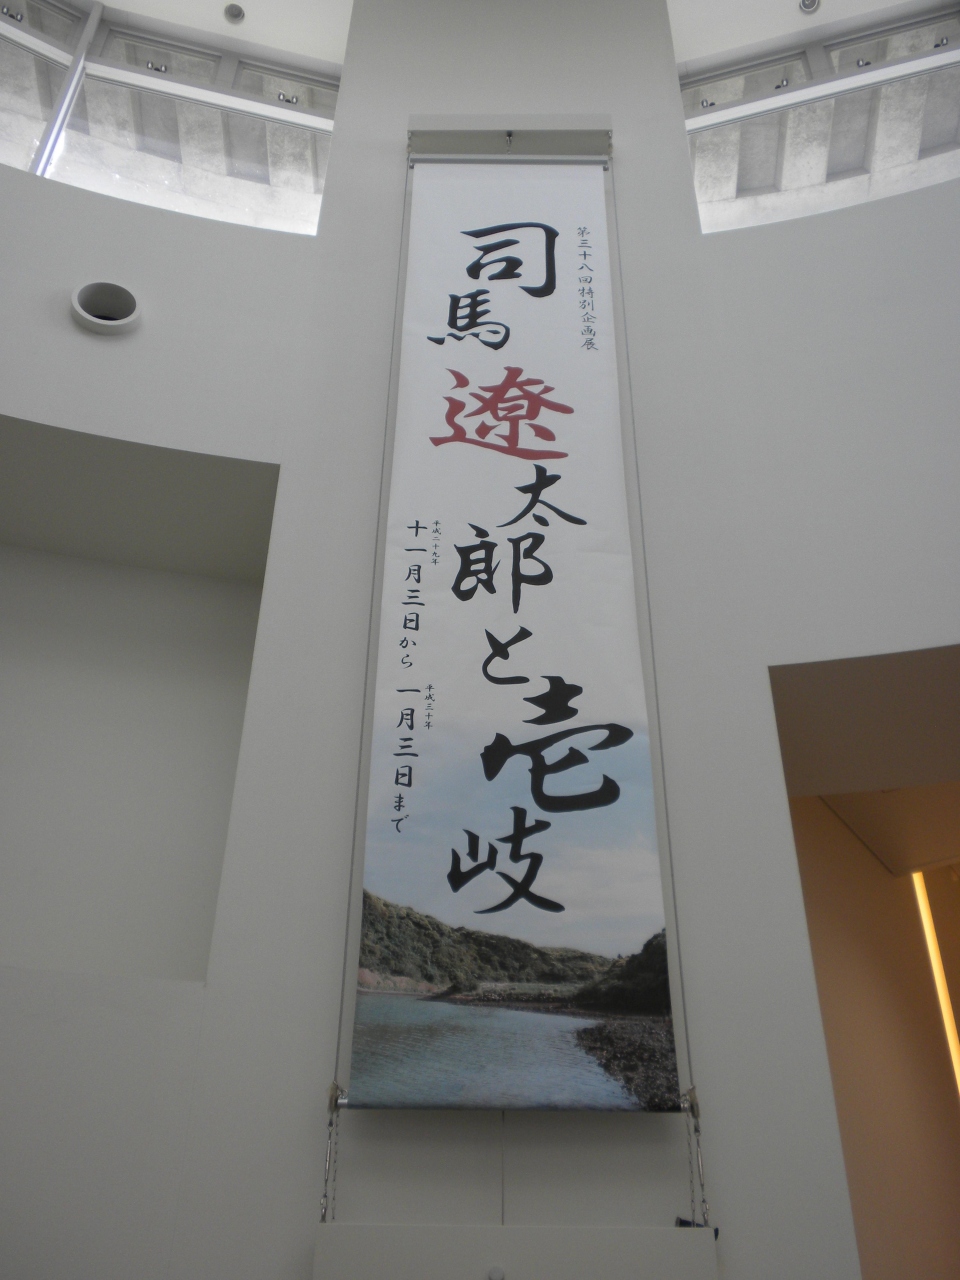 第三十八回特別企画展
司馬遼太郎と壱岐
平成二十九年
十一月三日から
平成三十年
一月三日まで